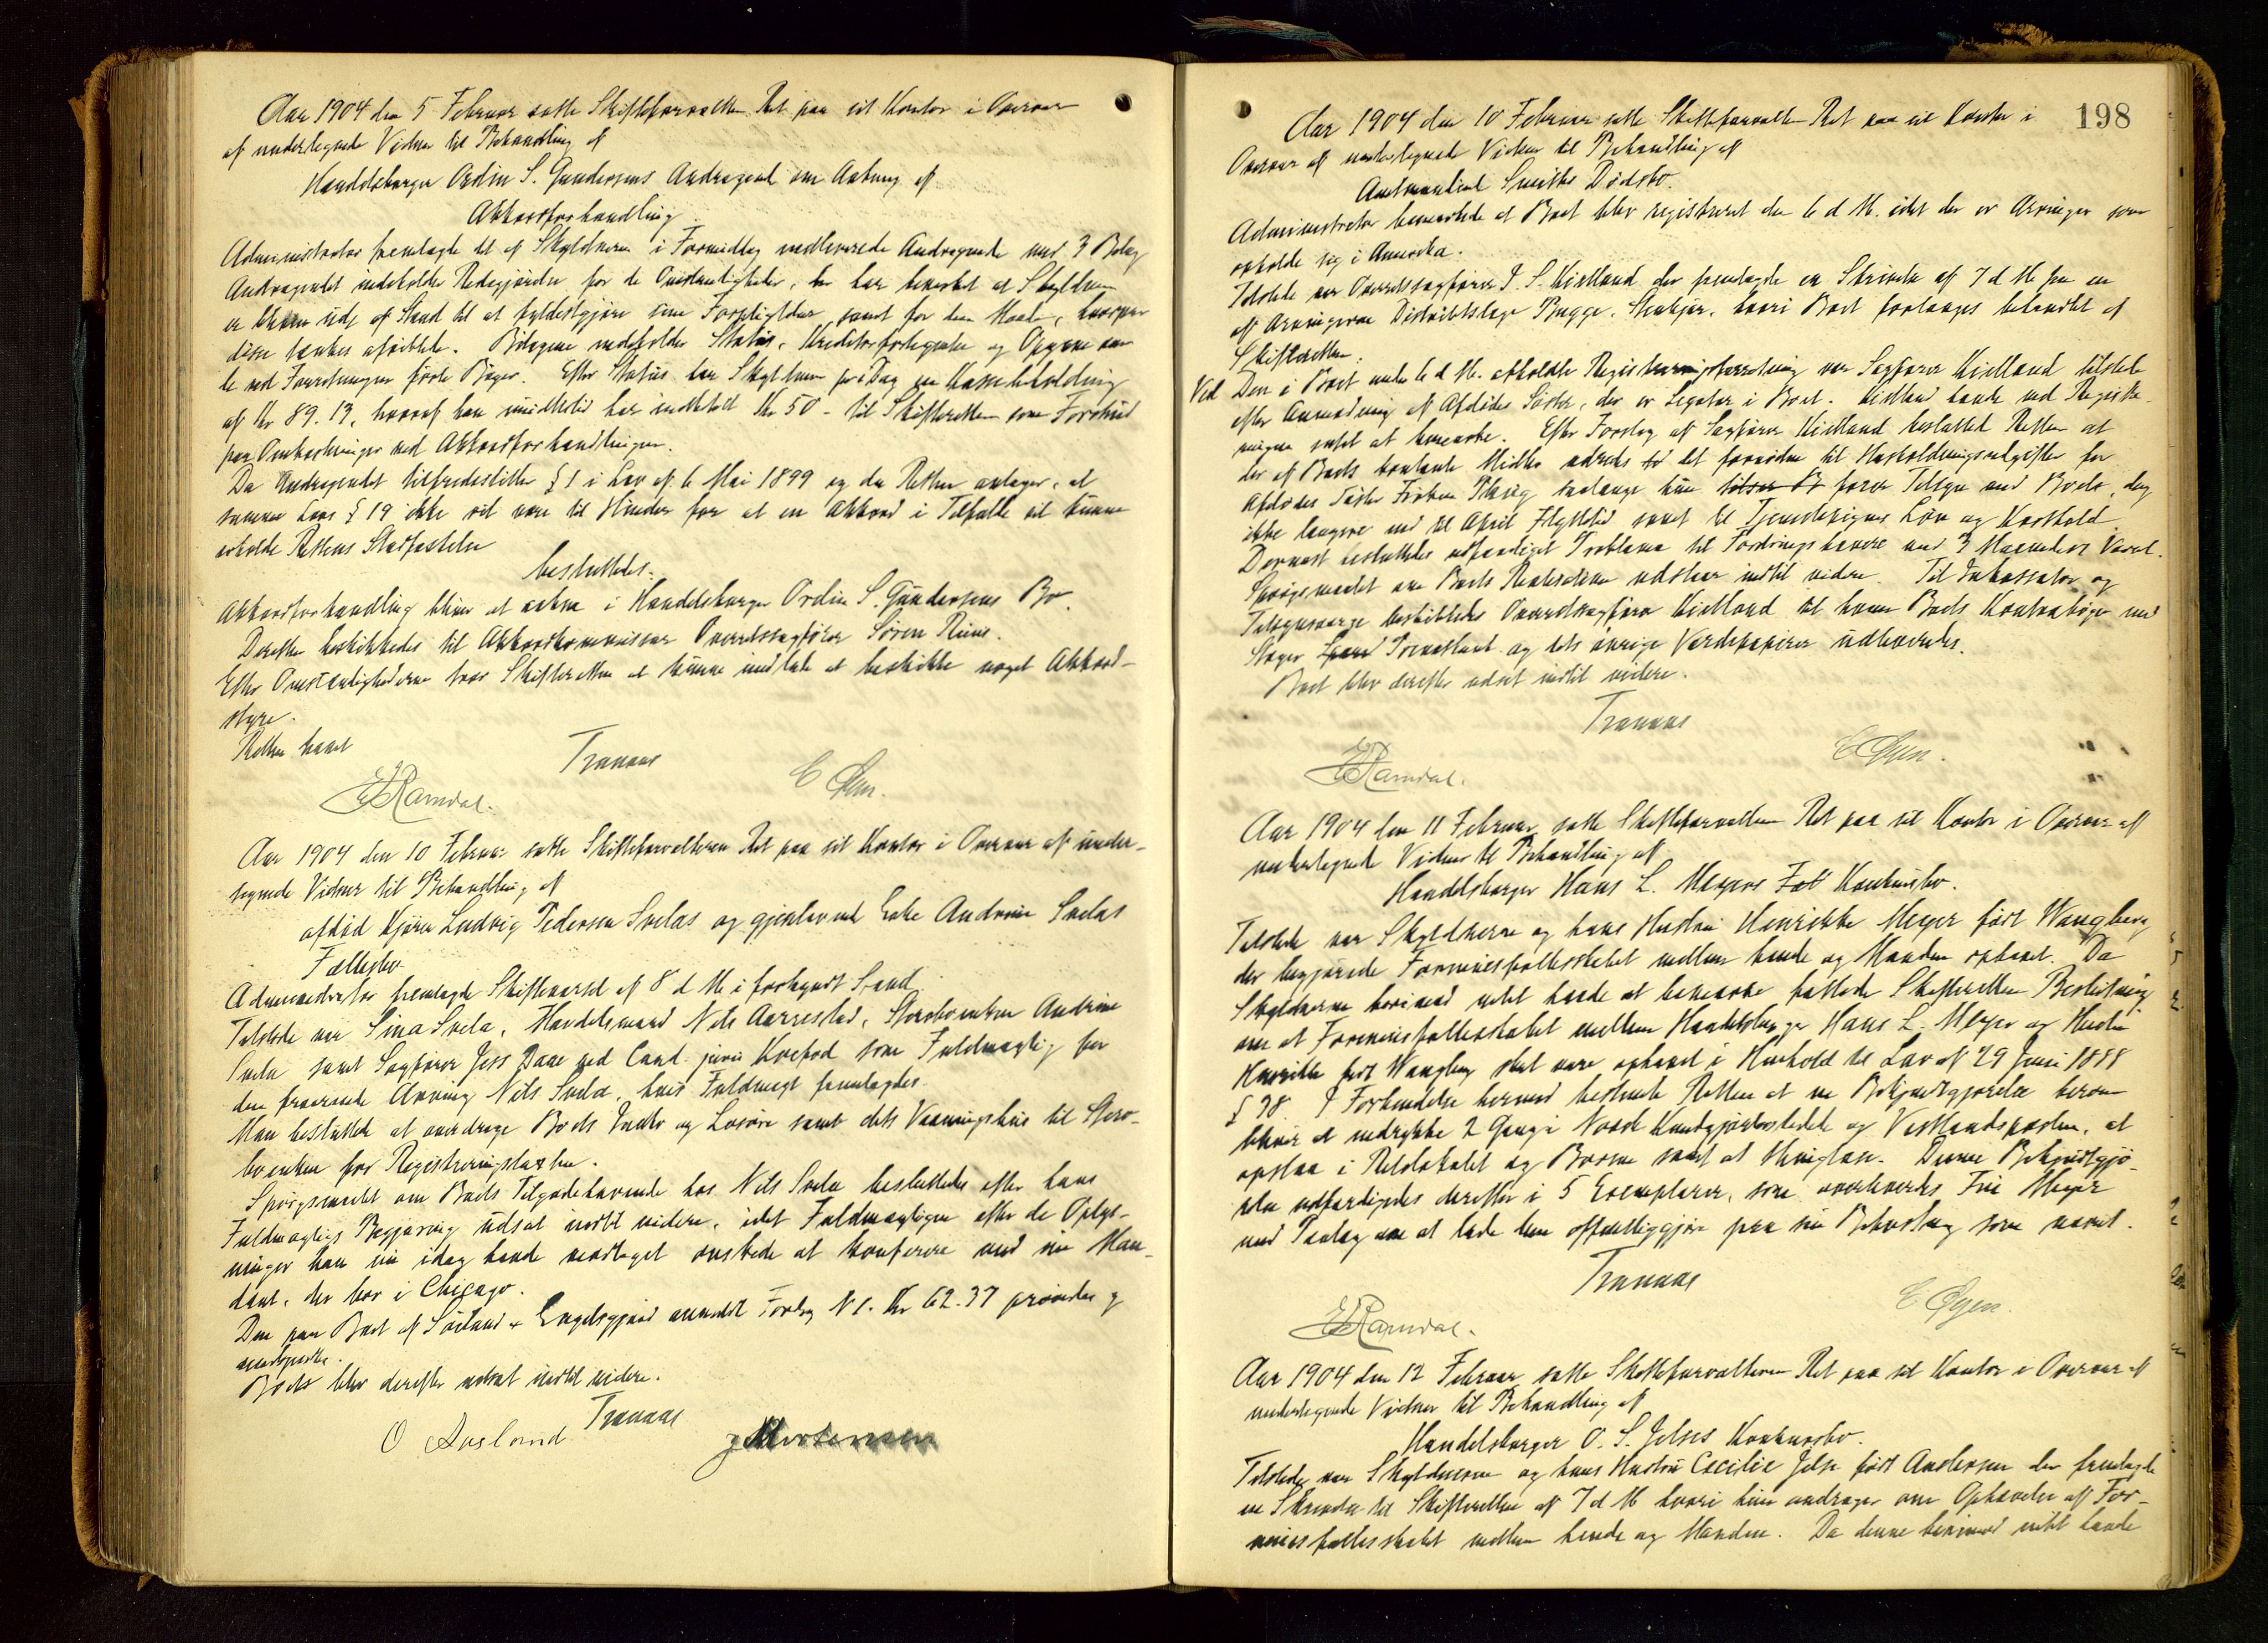 Aar 1904 den 5 Februar satte Skifteforvalteren Ret paa sit Kontor i Overvær
af undertegnede Vidner til Behandling af
Handelsborger Ordin S. Gundersens Andragende om Aabning af
Akkordforhandling.
Administrator fremlagde det af Skyldneren i Formiddag indleverede Andragende med 3 Bilag
Andragendet indeholder Redegjørelse for de Omstændigheder, der har bevirket at Skyldneren
er ude af Stand til at fyldestgjøre sine Forpligtelser samt for den Maade, hvorpaa
disse tænkes afviklede. Bilagene indeholder Status, Kreditorfortegnelse og Opgave over
de ved Forretningen førte Bøger. Efter Status har Skyldneren pr i Dag en Kassebeholdning
af Kr 89.13, hvoraf han imidlertid har indbetalt Kr 50 - til Skifteretten som Forskud
paa Omkostninger ved Akkordforhandlingen.
Da Andragendet tilfredsstiller § 1 i Lov af 6 Mai 1899 og da Retten antager, at
samme Lovs § 19 ikke vil være til Hinder for at en Akkord i Tilfælde vil kunne
erholde Rettens Stadfæstelse
besluttedes:
Akkordforhandling bliver at aabne i Handelsborger Ordin S. Gundersens Bo.
Derefter beskikkedes til Akkordkommissær Overretssagfører Sören
Efter Omstændighederne tror Skifteretten at kunne undlade at beskikke noget Akkord-
styre.
Retten hævet
Tranaas
E Ramdal. C Øgen.
Aar 1904 den 10 Februar satte Skifteforvalteren Ret paa sit Kontor i Overvær af under-
tegnede Vidner til Behandling af
afdød Kjører Ludvig Pedersen Svelas og gjenlevende Enke Andrine Svelas
Fællesbo.
Administrator fremlagde Skiftevarsel af 8 d M i forkyndt Stand.
Tilstede var Sina Svela, Handelsmand Nils Aarrestad, Storboenken Andrine
Svela samt Sagfører Jess Daae ved Cand. juris Koefod som Fuldmægtig for
den fraværende Arving Nils Svela, hvis Fuldmagt fremlagdes.
Man besluttede at overdrage Boets Indbo og Løsøre samt dets Vaaningshus til Storbo-
enken for Registreringstaxten.
Spørgsmaalet om Boets Tilgodehavende hos Nils Svela besluttedes efter hans
Fuldmægtigs Begjæring udsat indtil videre, idet Fuldmægtigen efter de Oplys-
ninger han nu idag havde modtaget ønskede at konferere med sin Man-
dant, der bor i Chicago.
Den paa Boet af Söiland & Engelsgjærd anmeldte Fordring N 1. Kr 62.37 prøvedes og
Boets blev derefter udsat indtil videre.
Tranaas
O Aasland J Mortensen
198
Aar 1904 den 10 Februar satte Skifteforvalteren Ret paa sit Kontor i
Overvær af undertegnede Vidner til Behandling af
Amtmand Smiths Dødsbo.
Administrator bemærkede at Boet blev registreret den 6 d M. idet der er Arvinger som
opholde sig i Amerika.
Tilstede var Overretssagfører J. S. Kielland der fremlagde en Skrivelse af 7 d M fra en
af Arvingerne Distriktslæge Bugge, Stenkjær, hvori Boet forlanges behandlet af
Skifteretten.
Ved Den i Boet under 6 d M. afholdte Registreringsforretning var Sagfører Kielland tilstede
efter Anmodning af Afdødes Søster, der er Legatar i Boet. Kielland havde ved Registre-
ringen intet at bemærke. Efter Forslag af Sagfører Kielland besluttede Retten at
der af Boets kontante Midler udredes det fornødne til Husholdningsudgifter for
Afdødes Søster Frøken saalænge hun fører Tilsyn med Boets, dog
ikke længere end til April Flyttetid samt til Tjenestepigens Løn og Kosthold.
Dernæst besluttedes udfærdiget Proklama til Fordringshavere med 3 Maaneders Varsel.
Spørgsmaalet om Boets Realisation udstaar indtil videre. Til Inkassator og
Tilsynsværge beskikkedes Overretssagfører Kielland til hvem Boets Kontrabøger med
Stavgr Privatbank og dets øvrige Værdipapirer udleveredes.
Boet blev derefter udsat indtil videre.
Tranaas
E Ramdal. C Øgen.
Aar 1904 den 11 Februar satte Skifteforvalteren Ret paa sit Kontor i Overvær af
undertegnede Vidner til Behandling af
Handelsborger Hans L. Meyers Konkursbo.
Tilstede var Skyldneren og hans Hustru Henrikke Meyer født Wangberg
der begjærede Formuesfællesskabet mellem hende og Manden ophævet. Da
Skyldneren herimod intet havde at bemærke fattede Skifteretten Beslutning
om at Formuesfællesskabet mellem Handelsborger Hans L. Meyer og Hustru
Henrikke født Wangberg skal være ophævet i Henhold til Lov af 29 Juni 1888
§ 38. I Forbindelse hermed bestemte Retten at en Bekjendtgjørelse herom
bliver at indrykke 2 Gange i Norsk Kundgjørelsestidende og Vestlandsposten, at
opslaa i Retslokalet og Børsen samt at thinglæse. Denne Bekjendtgjø-
relse udfærdigedes derefter i 5 Exemplarer, som overleveres Fru Meyer
med Paalæg om at lade den offentliggjøre paa sin Bekostning som nævnt.
Tranaas
E Ramdal. C Øgen.
Aar 1904 den 12 Februar satte Skifteforvalteren Ret paa sit Kontor i Overvær af
undertegnede Vidner til Behandling af
Handelsborger O. S. Jelses Konkursbo.
Tilstede var Skyldneren og hans Hustru Cecilie Jelse født Andersen der fremlagde
en Skrivelse til Skifteretten af 7 d M hvori hun andrager om Ophævelse af For-
muesfællesskabet mellem hende og Manden. Da denne herimod intet havde